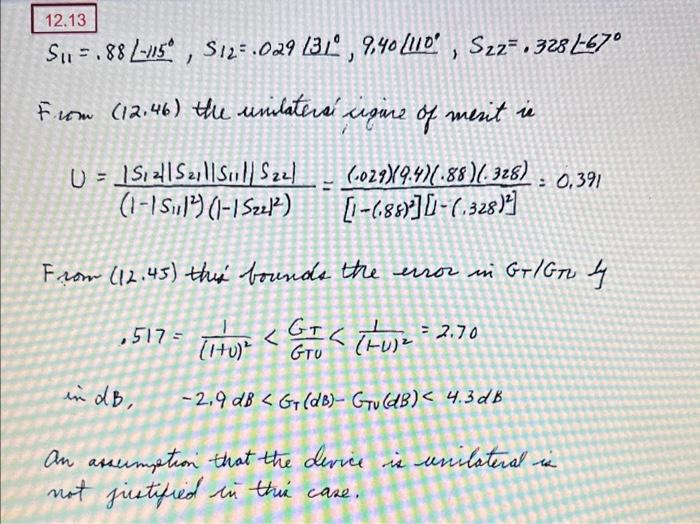 12.13
S11 = .88 ∠-115°, S12 = .029 ∠31°, 9.40 ∠110°, S22 = .328 ∠-67°
From (12.46) the unilateral figure of merit is
U = |S12||S21||S11||S22| / (1-|S11|²)(1-|S22|²) = (.029)(9.4)(.88)(.328) / [1-(.88)²][1-(.328)²] = 0.391
From (12.45) this bounds the error in GT/GTU by
.517 = 1/(1+U)² < GT/GTU < 1/(1-U)² = 2.70
in dB, -2.9 dB < GT(dB) - GTU(dB) < 4.3 dB
An assumption that the device is unilateral is
not justified in this case.